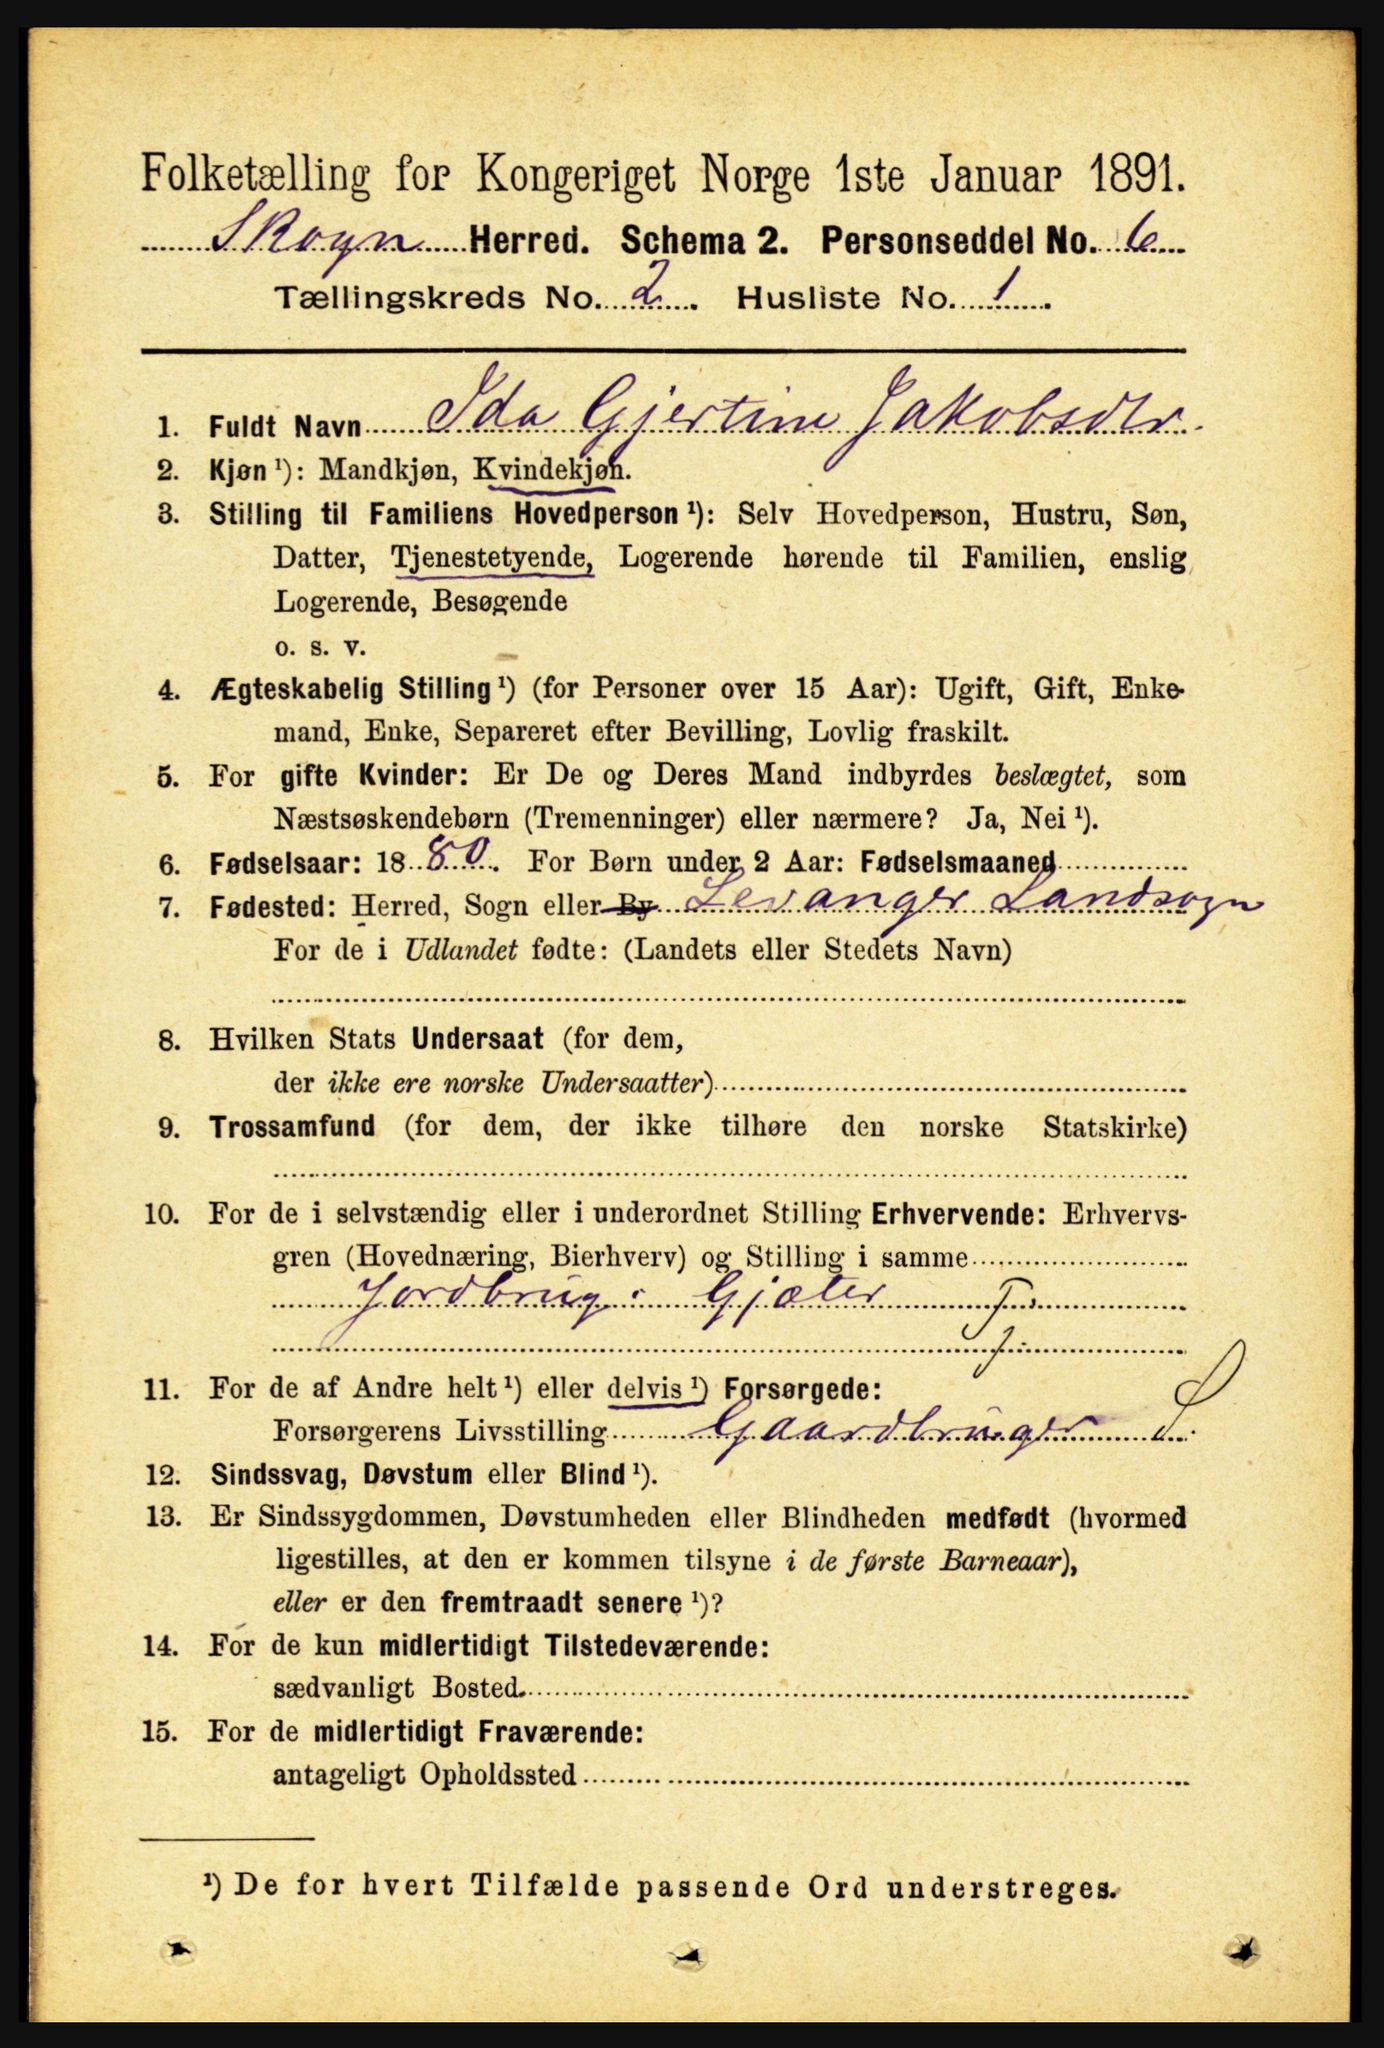 Folketælling for Kongeriget Norge 1ste Januar 1891.
Skogn Herred. Schema 2. Personseddel No. 6
Tællingskreds No. 2. Husliste No. 1.
1. Fuldt Navn Ida Gjertine Jakobsdtr.
2. Kjøn ¹): Mandkjøn, Kvindekjøn.
3. Stilling til Familiens Hovedperson ¹): Selv Hovedperson, Hustru, Søn,
Datter, Tjenestetyende, Logerende hørende til Familien, enslig
Logerende, Besøgende
o. s. v.
4. Ægteskabelig Stilling ¹) (for Personer over 15 Aar): Ugift, Gift, Enke-
mand, Enke, Separeret efter Bevilling, Lovlig fraskilt.
5. For gifte Kvinder: Er De og Deres Mand indbyrdes beslægtet, som
Næstsøskendebørn (Tremenninger) eller nærmere? Ja, Nei ¹).
6. Fødselsaar: 1880. For Børn under 2 Aar: Fødselsmaaned
7. Fødested: Herred, Sogn eller By Levanger Landsogn
For de i Udlandet fødte: (Landets eller Stedets Navn)
8. Hvilken Stats Undersaat (for dem,
der ikke ere norske Undersaatter)
9. Trossamfund (for dem, der ikke tilhøre den norske Statskirke)
10. For de i selvstændig eller i underordnet Stilling Erhvervende: Erhvervs-
gren (Hovednæring, Bierhverv) og Stilling i samme
Jordbrug: Gjæter
11. For de af Andre helt ¹) eller delvis ¹) Forsørgede:
Forsørgerens Livsstilling Gaardbruger
12. Sindssvag, Døvstum eller Blind ¹).
13. Er Sindssygdommen, Døvstumheden eller Blindheden medfødt (hvormed
ligestilles, at den er kommen tilsyne i de første Barneaar),
eller er den fremtraadt senere ¹)?
14. For de kun midlertidigt Tilstedeværende:
sædvanligt Bosted
15. For de midlertidigt Fraværende:
antageligt Opholdssted
¹) De for hvert Tilfælde passende Ord understreges.